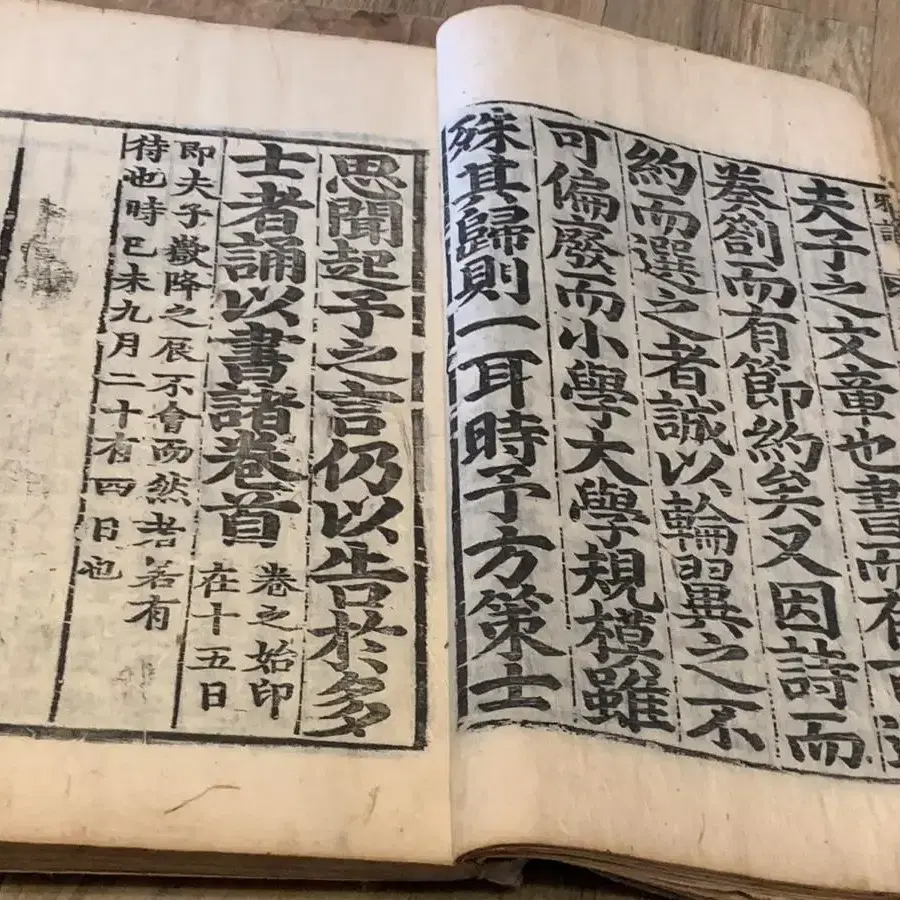 雅誦
夫子之文章也書而有
奏劄而有節約矣又因詩而
約而選之者誠以輪翼之不
可偏廢而小學大學規模雖
殊其歸則一耳時予方策士
思聞起予之言仍以告於多
士者誦以書諸卷首
卷之始印
在十五日
即夫子嶽降之辰不會而然者若有
待也時己未九月二十有四日也